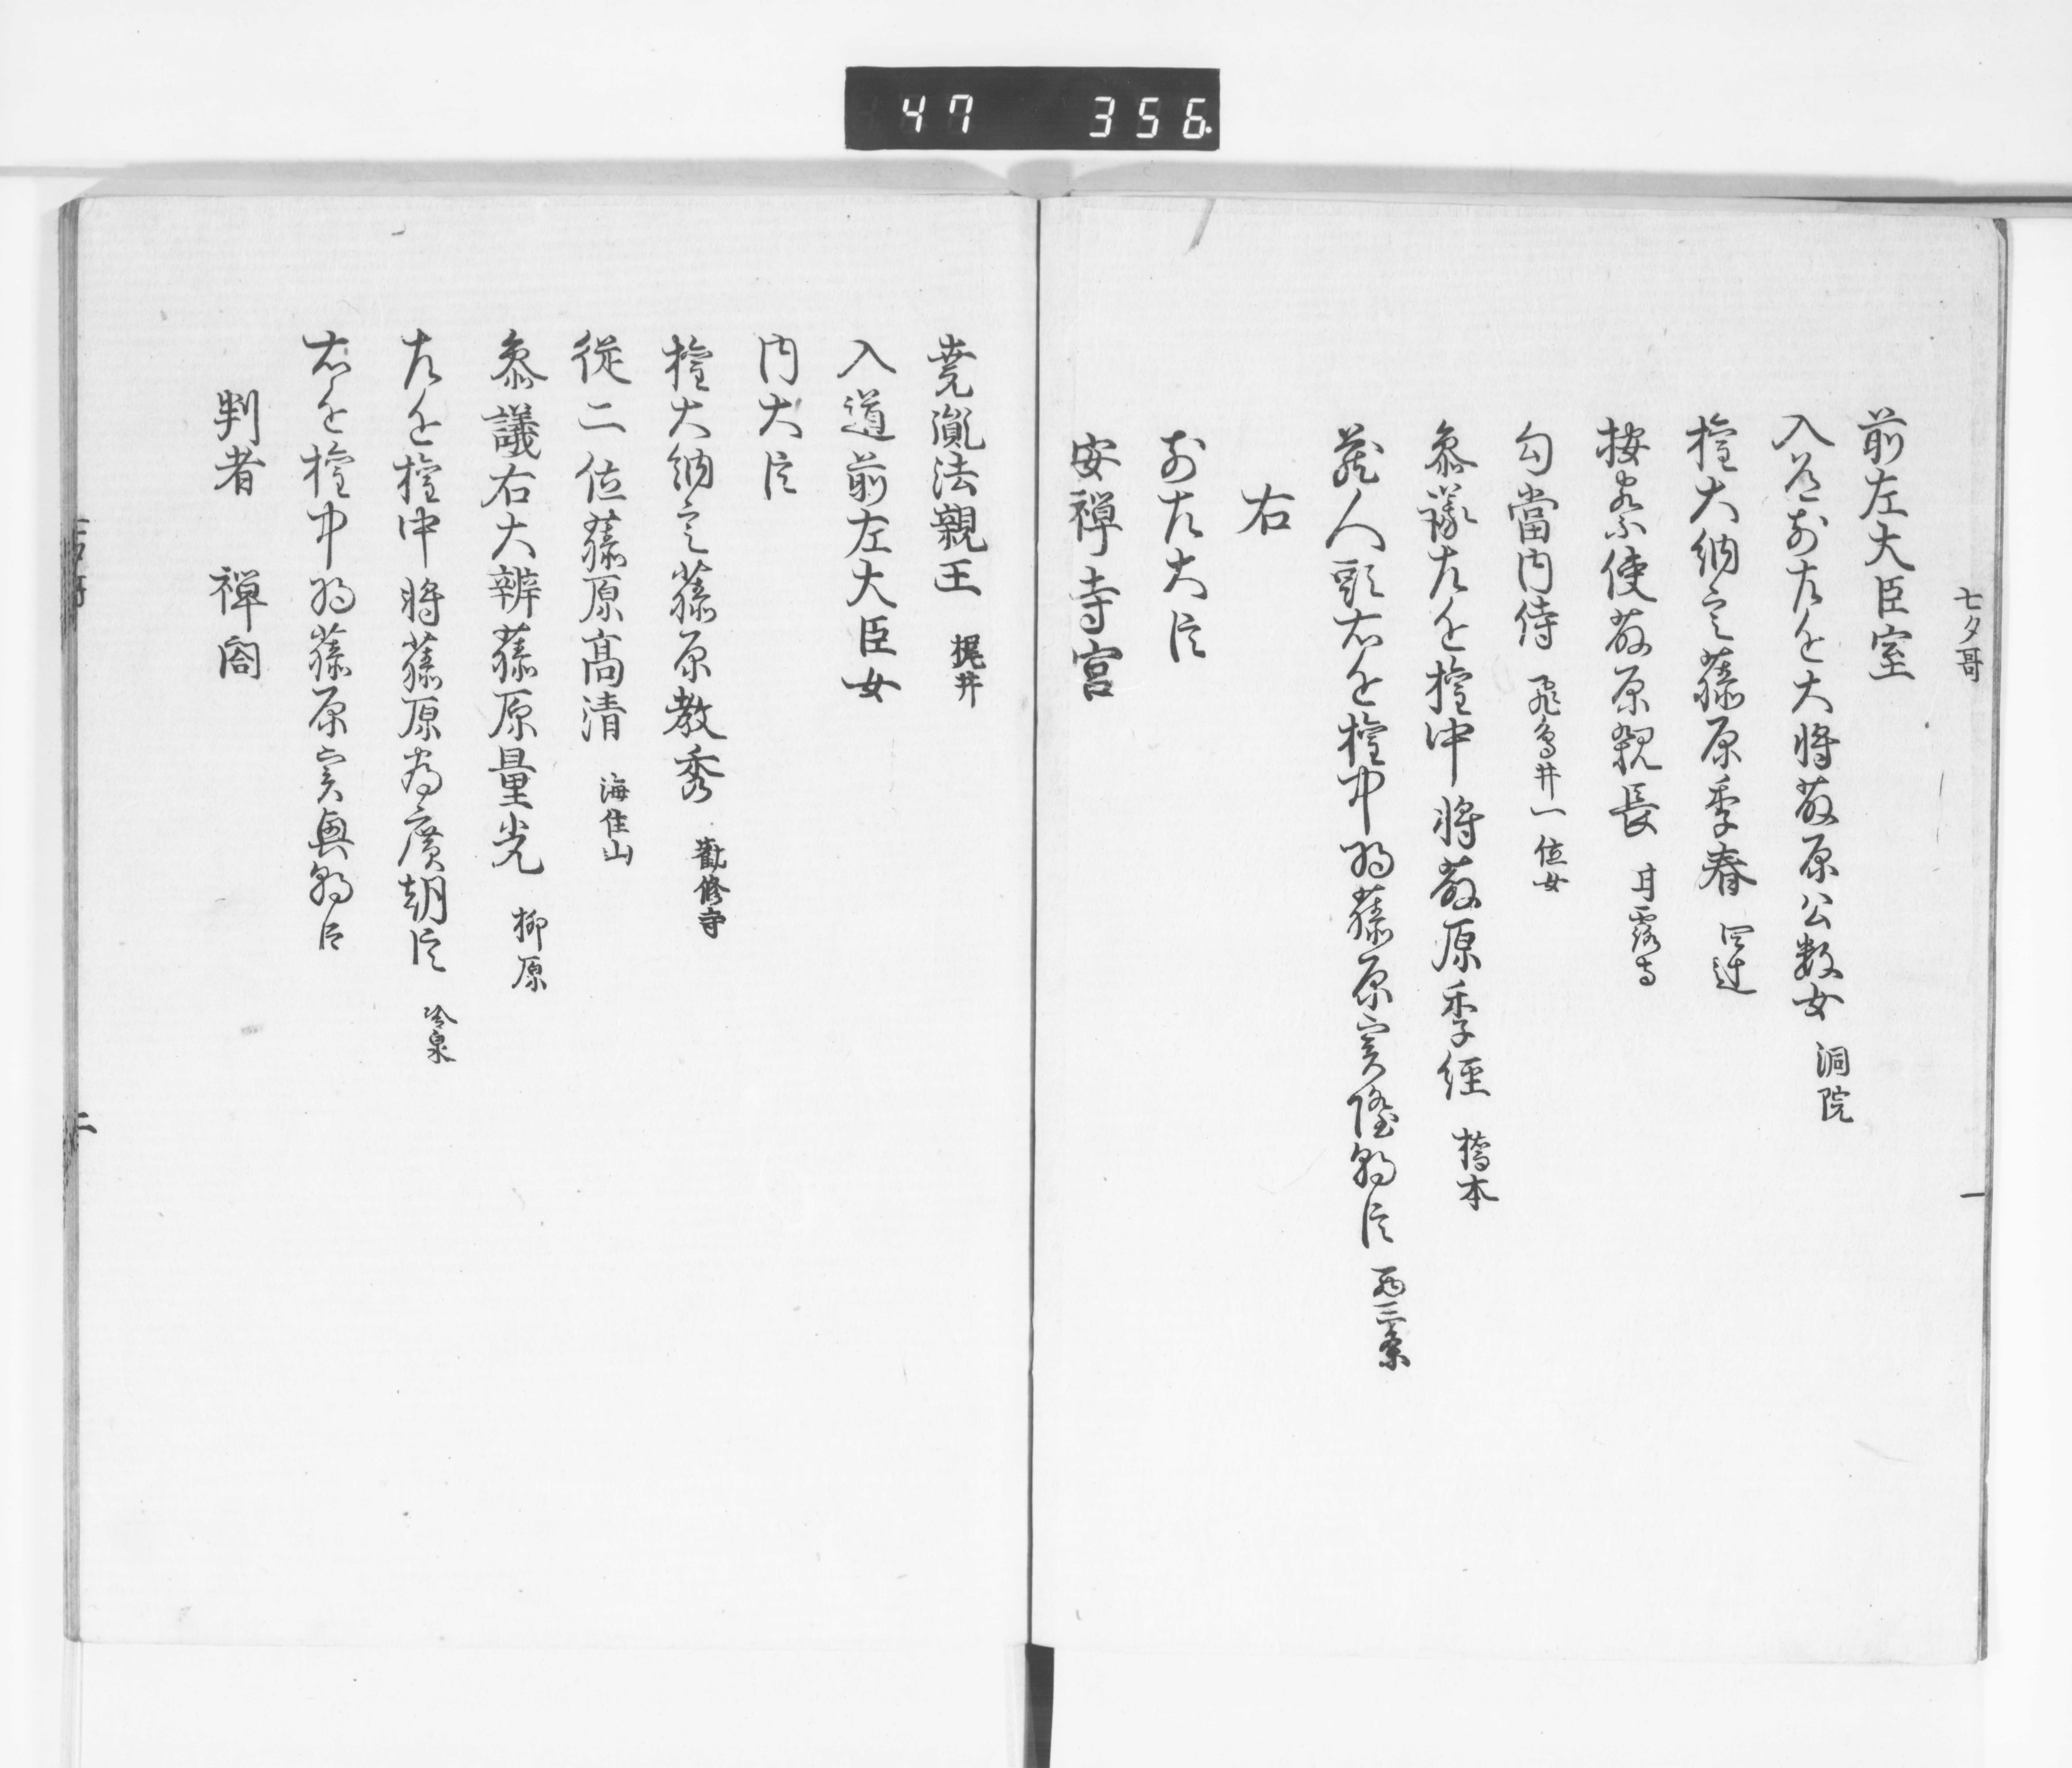 47 356.
七夕哥
一
前左大臣室
入道前左近大将藤原公数女 洞院
権大納言藤原季春 四辻
按察使藤原親長 甘露寺
勾當内侍 飛鳥井一位女
参議左近権中将藤原季経 橋本
蔵人頭右近権中将藤原実隆朝臣 西三条
右
前左大臣
安禅寺宮
尭胤法親王 梶井
入道前左大臣女
内大臣
権大納言藤原教秀 勸修寺
従二位藤原高清 海住山
参議右大辨藤原量光 柳原
左近権中将藤原為廣朝臣 冷泉
右近権中将藤原実興朝臣
判者 禅閤
二